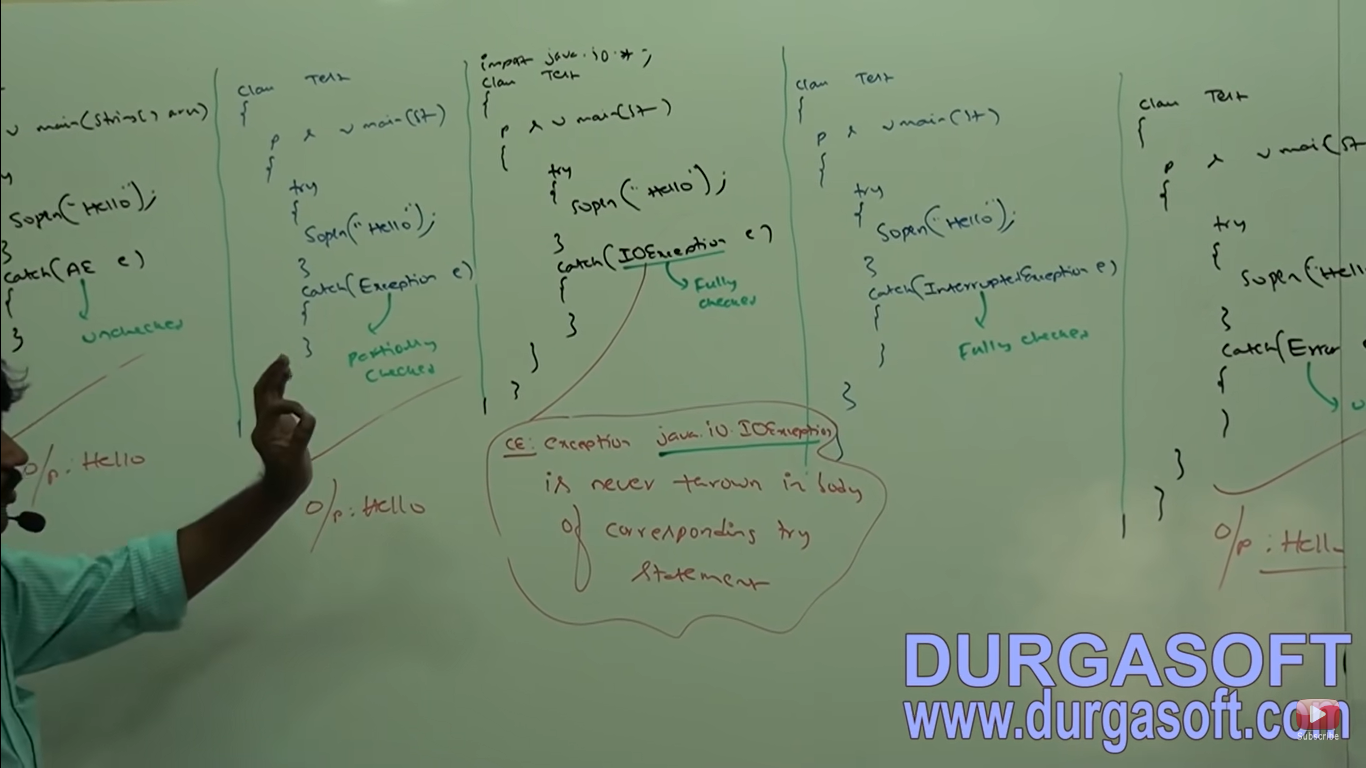 v main(String[] args)
y
Sopln("Hello");
}
catch(AE e)
{
}
unchecked
O/p: Hello
class Test
{
p s v main(St)
{
try
{
Sopln("Hello");
}
catch(Exception e)
{
}
Partially
checked
O/p: Hello
import java.io.*;
class Test
{
p s v main(St)
{
try
{
Sopln("Hello");
}
catch(IOException e)
{
}
}
}
Fully
checked
CE: exception java.io.IOException
is never thrown in body
of corresponding try
statement
class Test
{
p s v main(St)
{
try
{
Sopln("Hello");
}
catch(InterruptedException e)
{
}
}
}
Fully checked
class Test
{
p s v mai(St
{
try
{
Sopln("Hell
}
catch(Error e
{
}
}
}
u
O/p: Hello
DURGASOFT
www.durgasoft.com
Subscribe